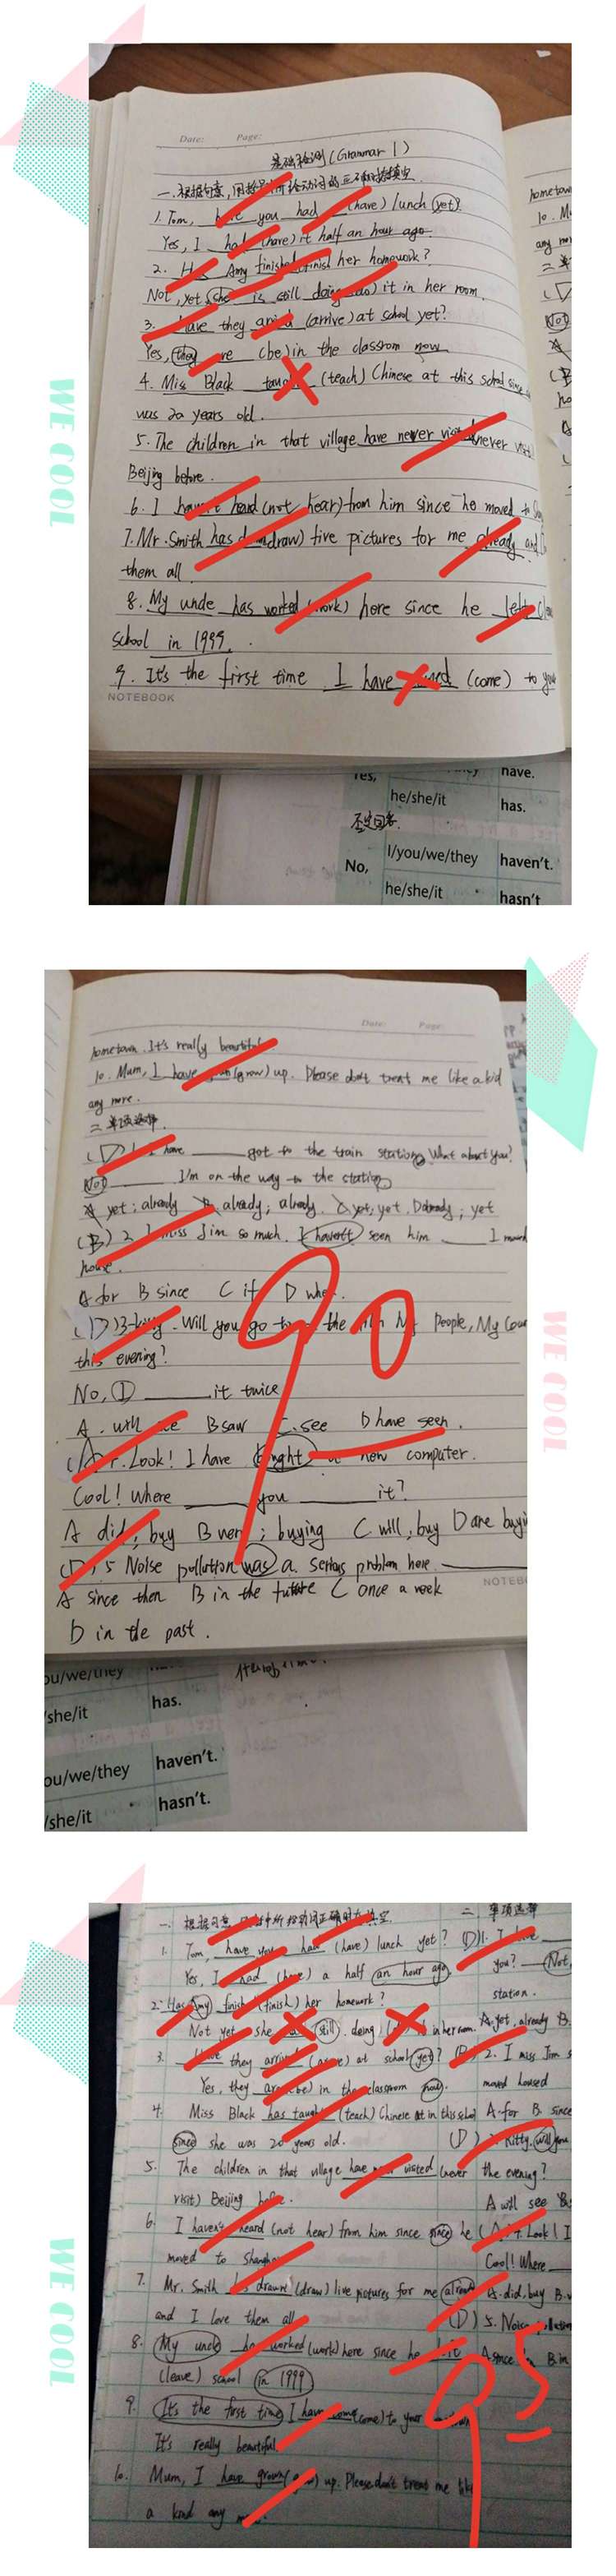 WE COOL
Date: Page:
基础检测(Grammar 1)
一.根据句意,用括号中所给动词的正确时态填空
1. Tom, have you had (have) lunch yet?
Yes, I had (have) it half an hour ago.
2. Has Amy finished (finish) her homework?
Not yet, she is still doing (do) it in her room.
3. Have they arrived (arrive) at school yet?
Yes, they are (be) in the classrom now
4. Miss Black (teach) Chinese at this school since
was 20 years old.
5. The children in that village have never (never
Beijing before.
6. I haven't heard (not hear) from him since he moved to
7. Mr. Smith has (draw) five pictures for me already and
them all.
8. My uncle has worked (work) here since he left
school in 1999.
9. It's the first time I have (come) to
NOTEBOOK
Yes, have.
he/she/it has.
否定回答
No, I/you/we/they haven't.
he/she/it hasn't
Date: Page:
hometown. It's really beautiful.
10. Mum, I have (grow) up. Please don't treat me like a kid
any more.
二 单项选择
(D) 1. I have ____ got to the train station. What about you?
Not ____ I'm on the way to the station
A yet; already B already; already. C yet; yet. D already; yet
(B) 2. I miss Jim so much. I haven't seen him ____ I moved
house.
A for B since C if D when.
(D) 3 Will you go to the film My People, My Coun
this evening?
No, I ____ it twice
A. will see B saw C. see D have seen.
(A) 4. Look! I have bought a new computer.
Cool! Where ____ you ____ it?
A did; buy B were; buying C will; buy D are buyi
(D) 5 Noise pollution was a serious problem here. ____
A since then B in the future C once a week
D in the past.
NOTEB
WE COOL
ou/we/they
/she/it has.
ou/we/they haven't.
/she/it hasn't.
90
一. 根据句意 中所给动词正确时态填空. 二 单项选择
1. Tom, have you had (have) lunch yet? (D) 1. I have
Yes, I had (have) a half an hour ago. you? Not,
station.
2. Has Amy finish (finish) her homework?
Not yet she still doing in her room. A. yet, already B.
3. Have they arrived at school yet? (B) 2. I miss Jim s
Yes, they are (be) in the classrom now. moved housed
4. Miss Black has taught (teach) Chinese at in this school A for B since
since she was 20 years old. (D) Kitty. will you
5. The children in that village have visited (never the evening?
visit) Beijing before. A will see B
6. I haven't heard (not hear) from him since he (A) 4. Look! I
moved to Shanghai Cool! Where
7. Mr. Smith drawn (draw) five pictures for me already A. did, buy B.
and I love them all (D) 5. Noise pollution
8. My uncle worked (work) here since he A since B in
(leave) school in 1999
9. It's the first time I have (come) to your
It's really beautiful.
10. Mum, I have grown up. Please don't treat me like
a kind any
95
WE COOL